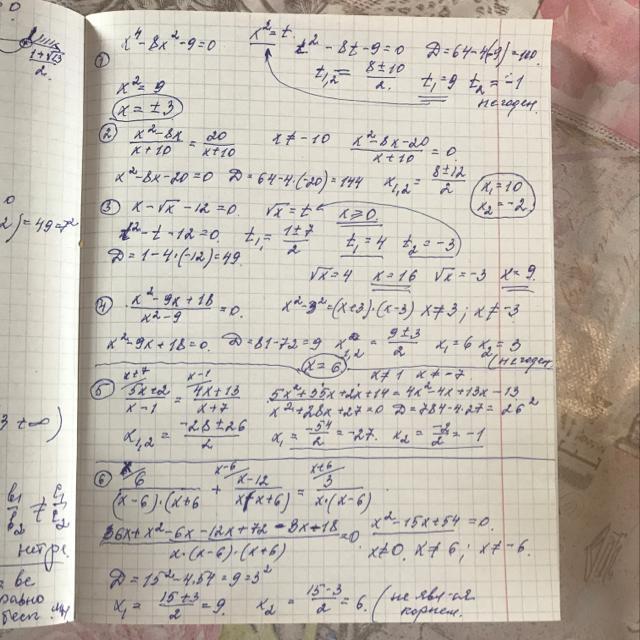 1+√13
2.
① x⁴-8x²-9=0 x²=t t²-8t-9=0 D=64-4(-9)=100
t₁,₂= 8±10/2. t₁=9 t₂=-1
x²=9 не годен.
x=±3
② x²-8x/x+10 = 20/x+10 x≠-10 x²-8x-20/x+10 = 0.
x²-8x-20=0 D=64-4·(-20)=144 x₁,₂= 8±12/2 x₁=10
x₂=-2
③ x-√x-12=0. √x=t x≥0.
t²-t-12=0. t₁,= 1±7/2 t₁=4 t₂=-3
D=1-4·(-12)=49. √x=4 x=16 √x=-3 x=9.
④ x²-9x+18/x²-9 = 0. x²-3²=(x+3)·(x-3) x≠3; x≠-3
x²-9x+18=0. D=81-72=9 x₁,₂ = 9±3/2 x₁=6 x₂=3
x=6 (не годен
x≠1 x≠-7
⑤ x+7/ 5x+2/x-1 = x-1/ 4x+13/x+7 5x²+35x+2x+14=4x²-4x+13x-13
x²+28x+27=0 D=784-4·27=26²
x₁,₂= -28±26/2 x₁= -54/2 =-27. x₂= -2/2 =-1
⑥ x/ 6/(x-6)·(x+6 + x-6/ x-12/x(x+6) = x+6/ 3/x·(x-6)
36x+x²-6x-12x+72-3x-18/x·(x-6)·(x+6) =0 x²-15x+54=0.
x≠0. x≠6; x≠-6.
D=15²-4·54=9=3²
x₁= 15+3/2 =9. x₂= 15-3/2 =6. (не явл-ся
корнем.
)=49=7²
3 +∞)